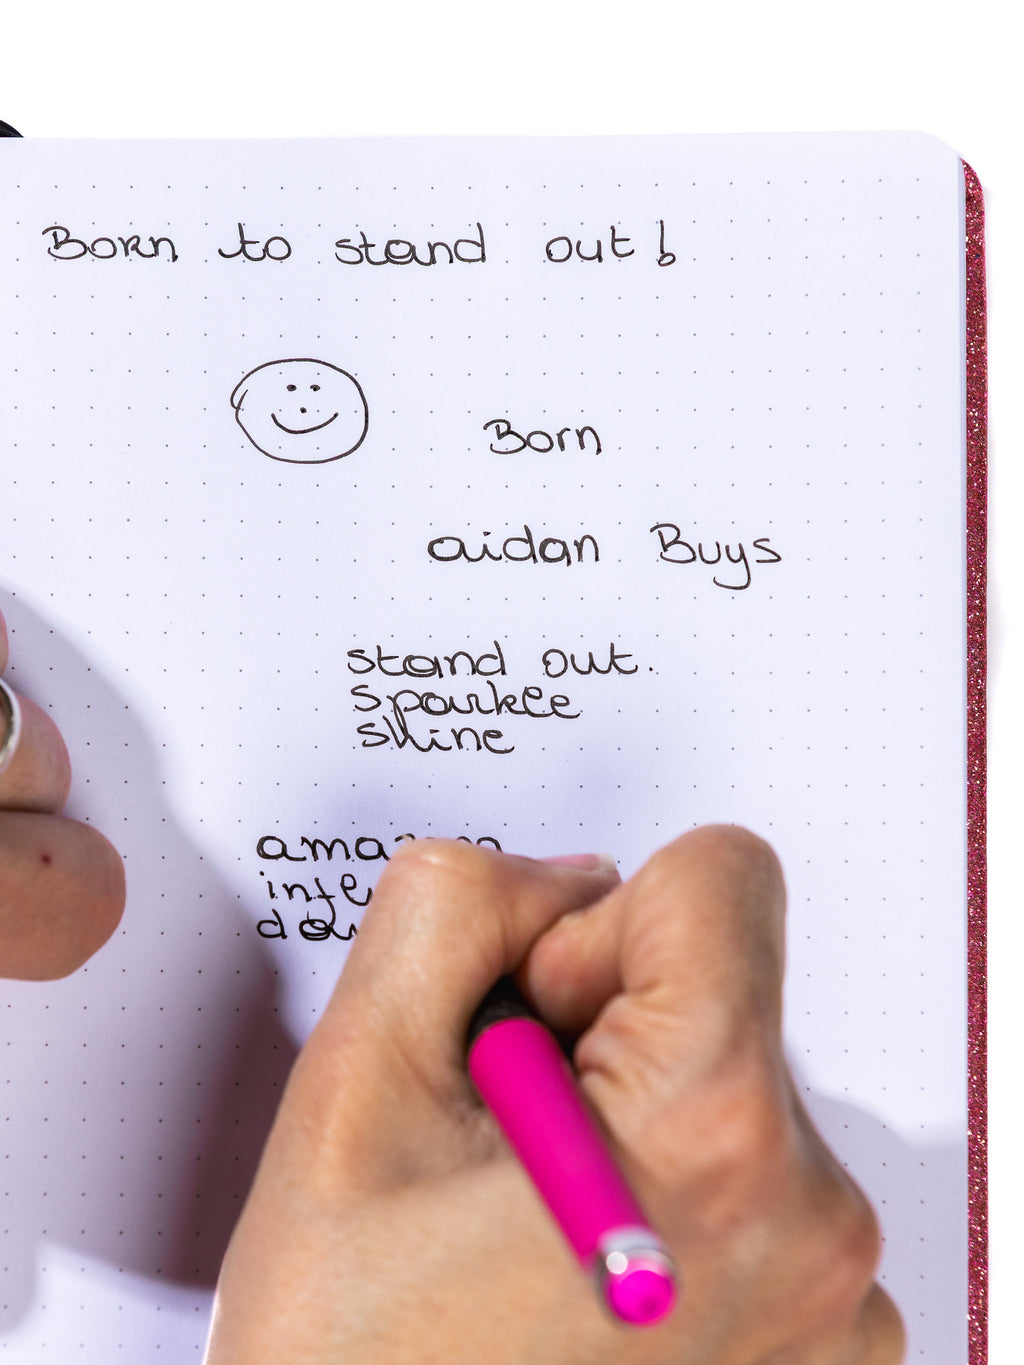 Born to stand out!
Born
aidan Buys
stand out.
sparkle
shine